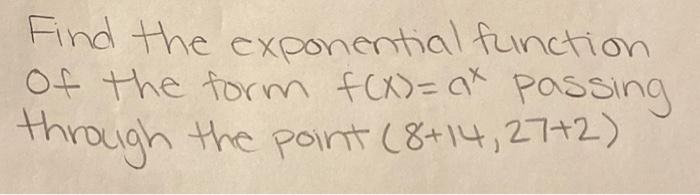 Find the exponential function
Of the form f(x)=a^x passing
through the point (8+14,27+2)